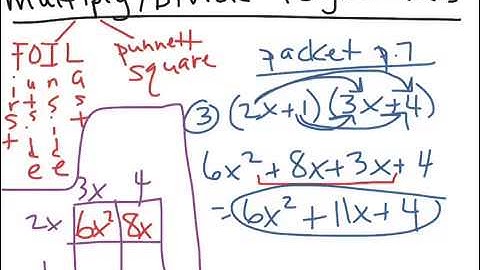 Multiply/Divide
FOIL
irst
uts ide
nside
ast
punnett
square
packet p.7
③ (2x+1)(3x+4)
6x² + 8x + 3x + 4
= 6x² + 11x + 4
3x 4
2x 6x² 8x